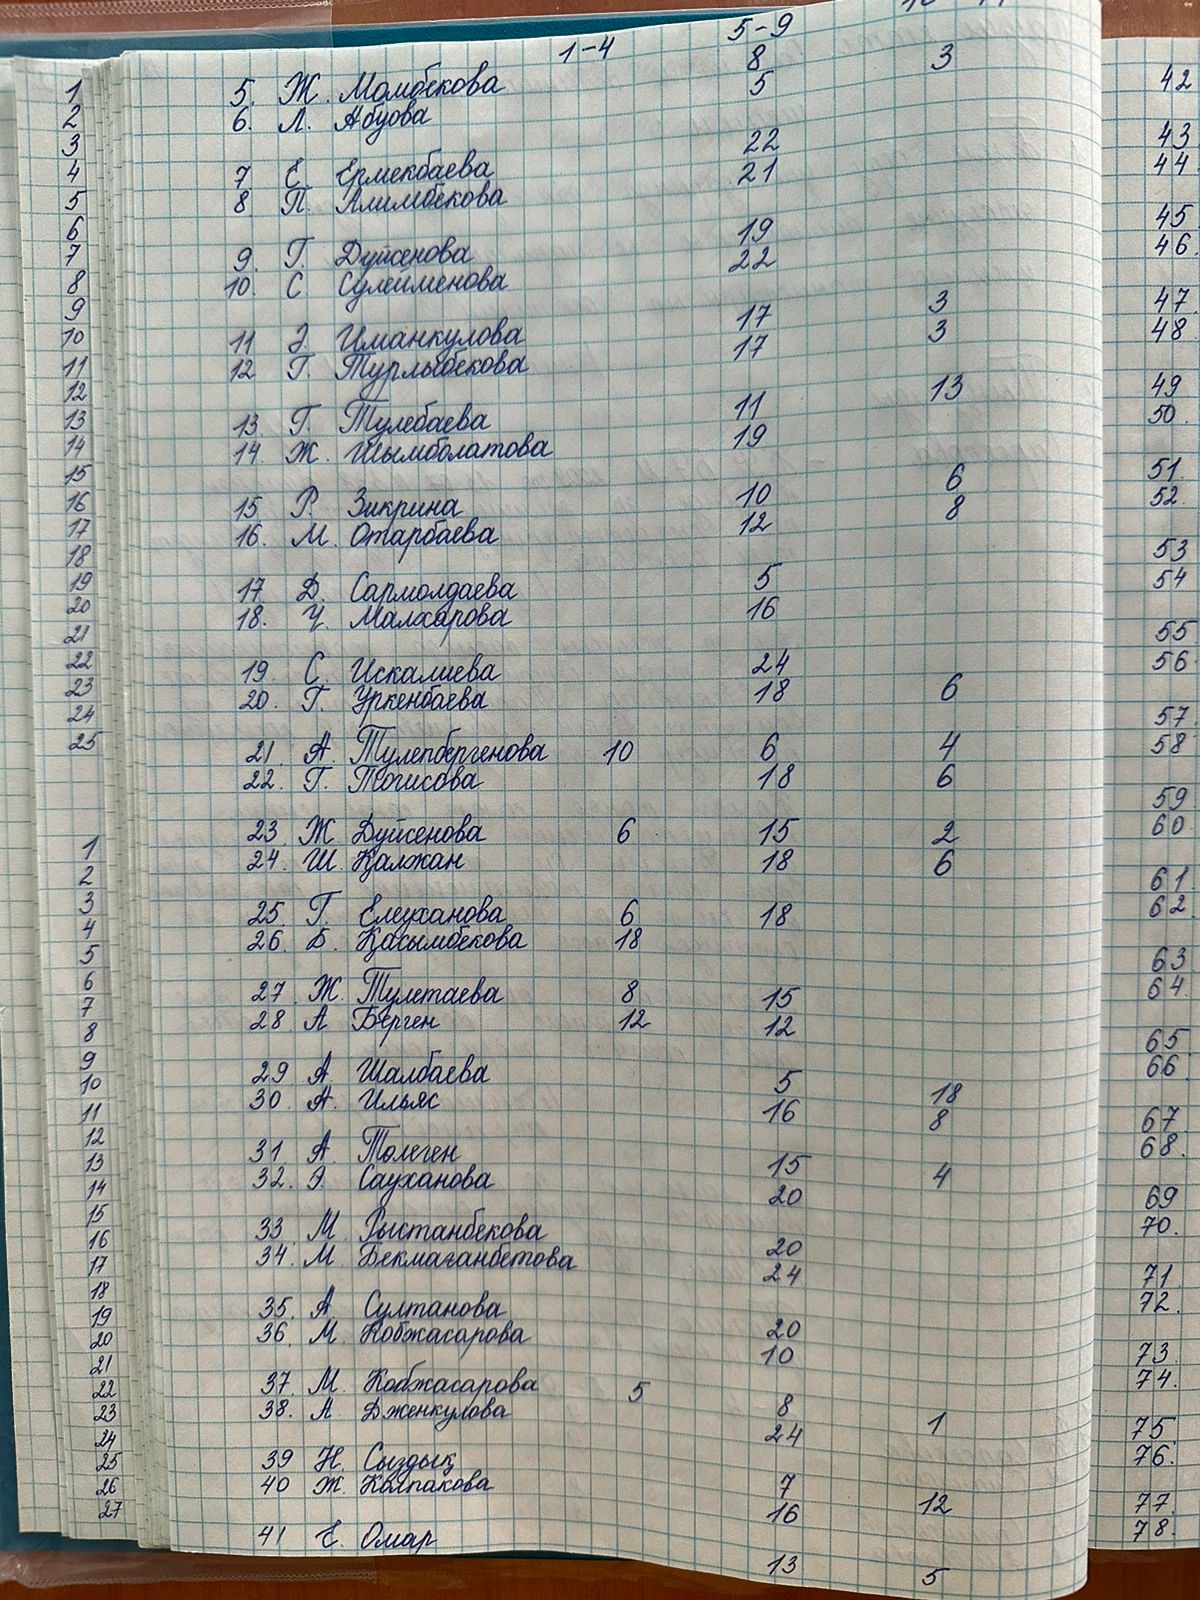 1-4 5-9
5. Ж. Момбекова 8 3
6. Л. Абуова 5
7 Е. Ермекбаева 22
8 П. Алимбекова 21
9. Г. Дуйсенова 19
10. С Сулейменова 22
11 Э. Иманкулова 17 3
12 Г. Турлыбекова 17 3
13 Г. Тулебаева 11 13
14. Ж. Шымболатова 19
15. Р. Зикрина 10 6
16. М. Отарбаева 12 8
17 Д. Сармолдаева 5
18. Ч. Малхарова 16
19. С. Искалиева 24
20. Г. Уркенбаева 18 6
21. А. Тулепбергенова 10 6 4
22. Г. Тогисова 18 6
23. Ж Дуйсенова 6 15 2
24. Ш. Қалжан 18 6
25. Г. Елеуханова 6 18
26. Б. Қасымбекова 18
27. Ж. Тулетаева 8 15
28 А Берген 12 12
29 А Шалбаева 5 18
30. А. Ильяс 16 8
31 А. Толеген 15 4
32. Э Сауханова 20
33 М Рыстанбекова 20
34. М Бекмағанбетова 24
35. А Султанова 20
36. М Кобжасарова 10
37 М. Кобжасарова 5 8
38. А. Дженкулова 24 1
39 Н. Сыздық 7
40 Ж. Колпакова 16 12
41 Е. Омар 13 5
1
2
3
4
5
6
7
8
9
10
11
12
13
14
15
16
17
18
19
20
21
22
23
24
25
1
2
3
4
5
6
7
8
9
10
11
12
13
14
15
16
17
18
19
20
21
22
23
24
25
26
27
42
43
44
45
46
47
48
49
50.
51.
52.
53
54
55
56
57
58
59
60
61
62.
63
64.
65
66
67
68.
69
70.
71
72.
73
74.
75
76.
77
78.